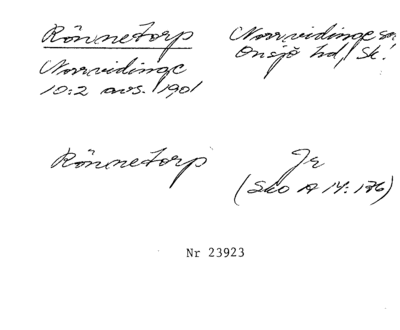 Rönnetorp
Norrvidinge sn
Norrvidinge
Onsjö hd, Sk!
10:2 avs. 1901
Rönnetorp
Jr
(Sko A 14: 176)
Nr 23923